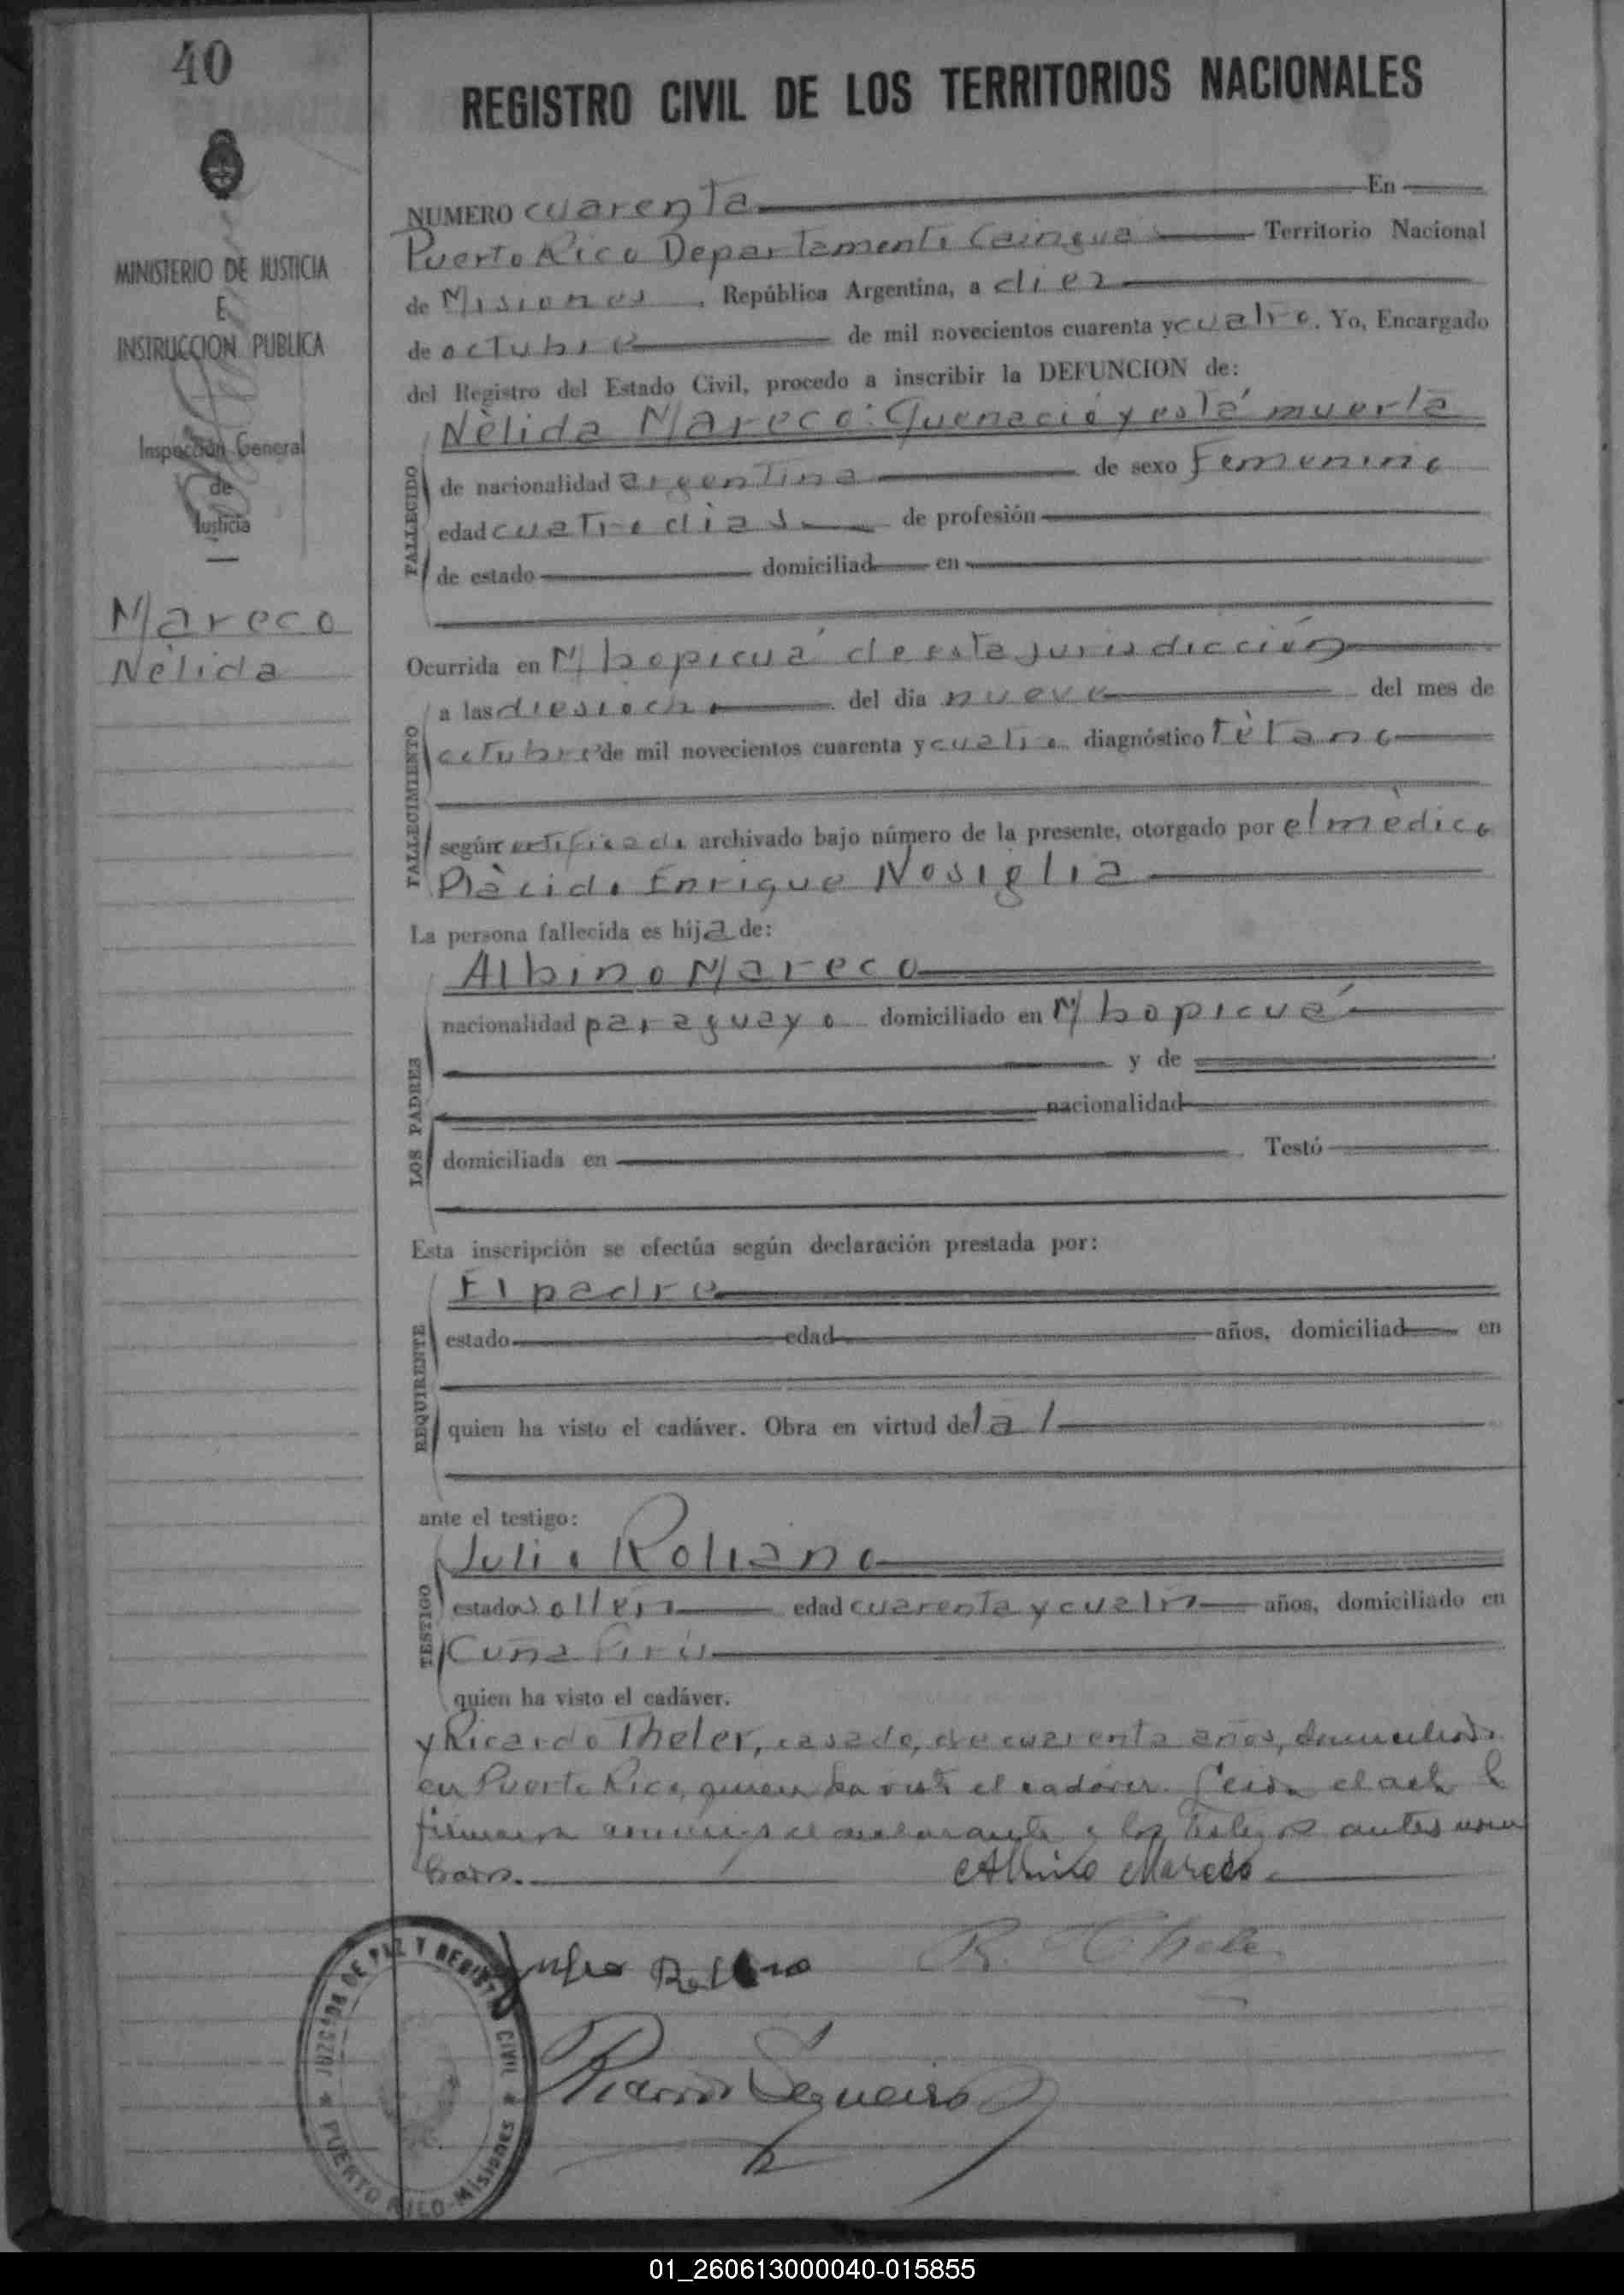 40
REGISTRO CIVIL DE LOS TERRITORIOS NACIONALES
MINISTERIO DE JUSTICIA
E
INSTRUCCION PUBLICA
Inspección General
de
Justicia
Mareco
Nèlida
NUMERO cuarenta En
Puerto Rico Departamento Cainguas Territorio Nacional
de Misiones, República Argentina, a diez
de octubre de mil novecientos cuarenta y cuatro. Yo, Encargado
del Registro del Estado Civil, procedo a inscribir la DEFUNCION de:
FALLECIDO
Nèlida Mareco: Que nació y está muerta
de nacionalidad argentina de sexo Femenino
edad cuatro dias de profesión
de estado domiciliad en
Ocurrida en Mbopicuá de esta jurisdicción
FALLECIMIENTO
a las diesiocho del dia nueve del mes de
octubre de mil novecientos cuarenta y cuatro diagnóstico tètano
según certificado archivado bajo número de la presente, otorgado por el mèdico
Plàcido Enrique Nosiglia
La persona fallecida es hija de:
LOS PADRES
Albino Mareco
nacionalidad paraguayo domiciliado en Mbopicuá
y de
nacionalidad
domiciliada en Testó
Esta inscripción se efectúa según declaración prestada por:
REQUIRENTE
El padre
estado edad años, domiciliad en
quien ha visto el cadáver. Obra en virtud de la l
ante el testigo:
TESTIGO
Julio Roliano
estado soltero edad cuarenta y cuatro años, domiciliado en
Cuña Pirú
quien ha visto el cadáver.
y Ricardo Theler, casado, de cuarenta años, domiciliado
en Puerto Rico, quien ha visto el cadáver. Leida el acta l
firmaron conmigo el declarante y los testigos antes nom
brados.
Albino Mareco
Julio Roliano R. Theler
JUZGADO DE PAZ Y REGISTRO CIVIL
PUERTO RICO-MISIONES
01_260613000040-015855